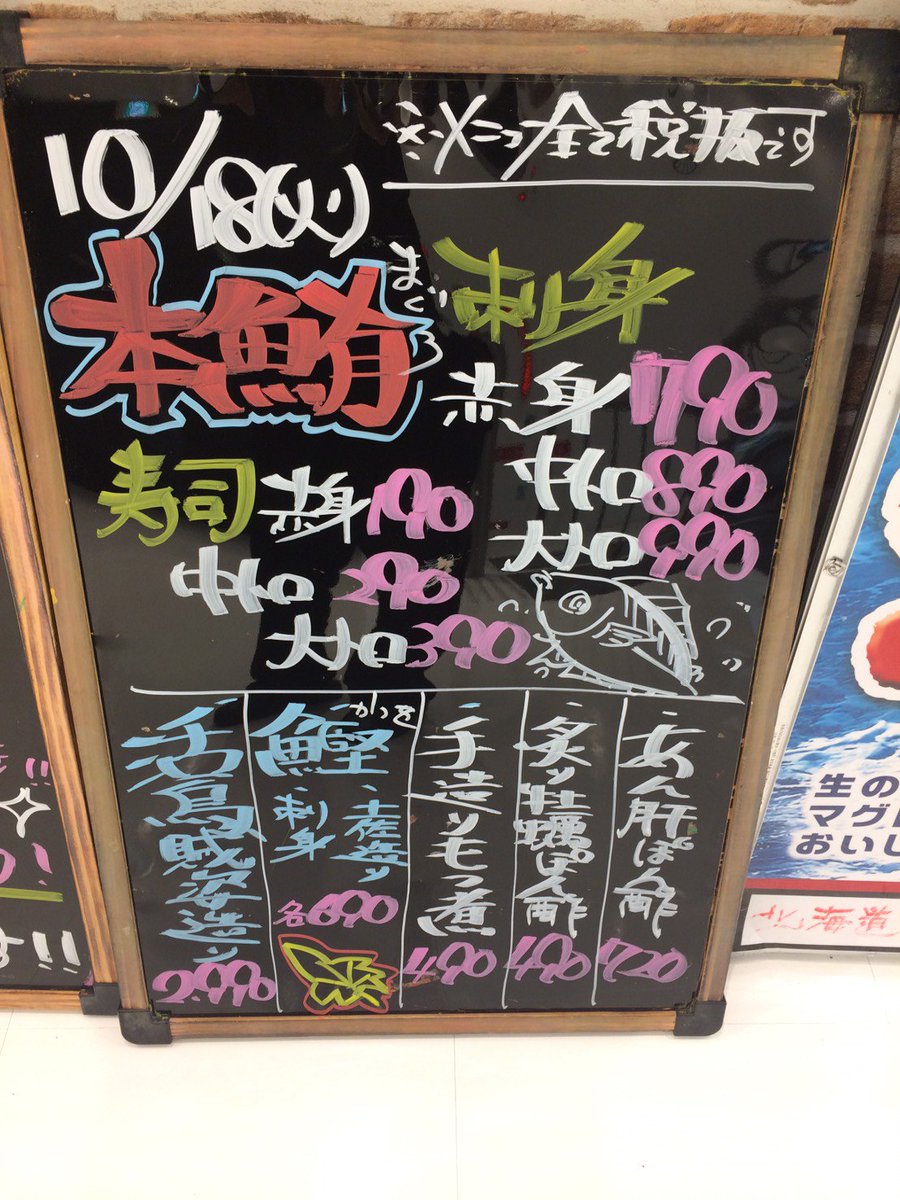 ※メニュー全て税抜です
10/18(火)
本鮪
まぐろ
刺身
赤身 1790
中トロ 890
大トロ 990
寿司 赤身 190
中トロ 290
大トロ 390
・あん肝ぽん酢
720
・炙り牡蠣ぽん酢
490
・手造りモツ煮
490
・鰹 かつを
土佐造り
刺身
各690
・活烏賊姿造り
2.990
生の
マグ
おいし